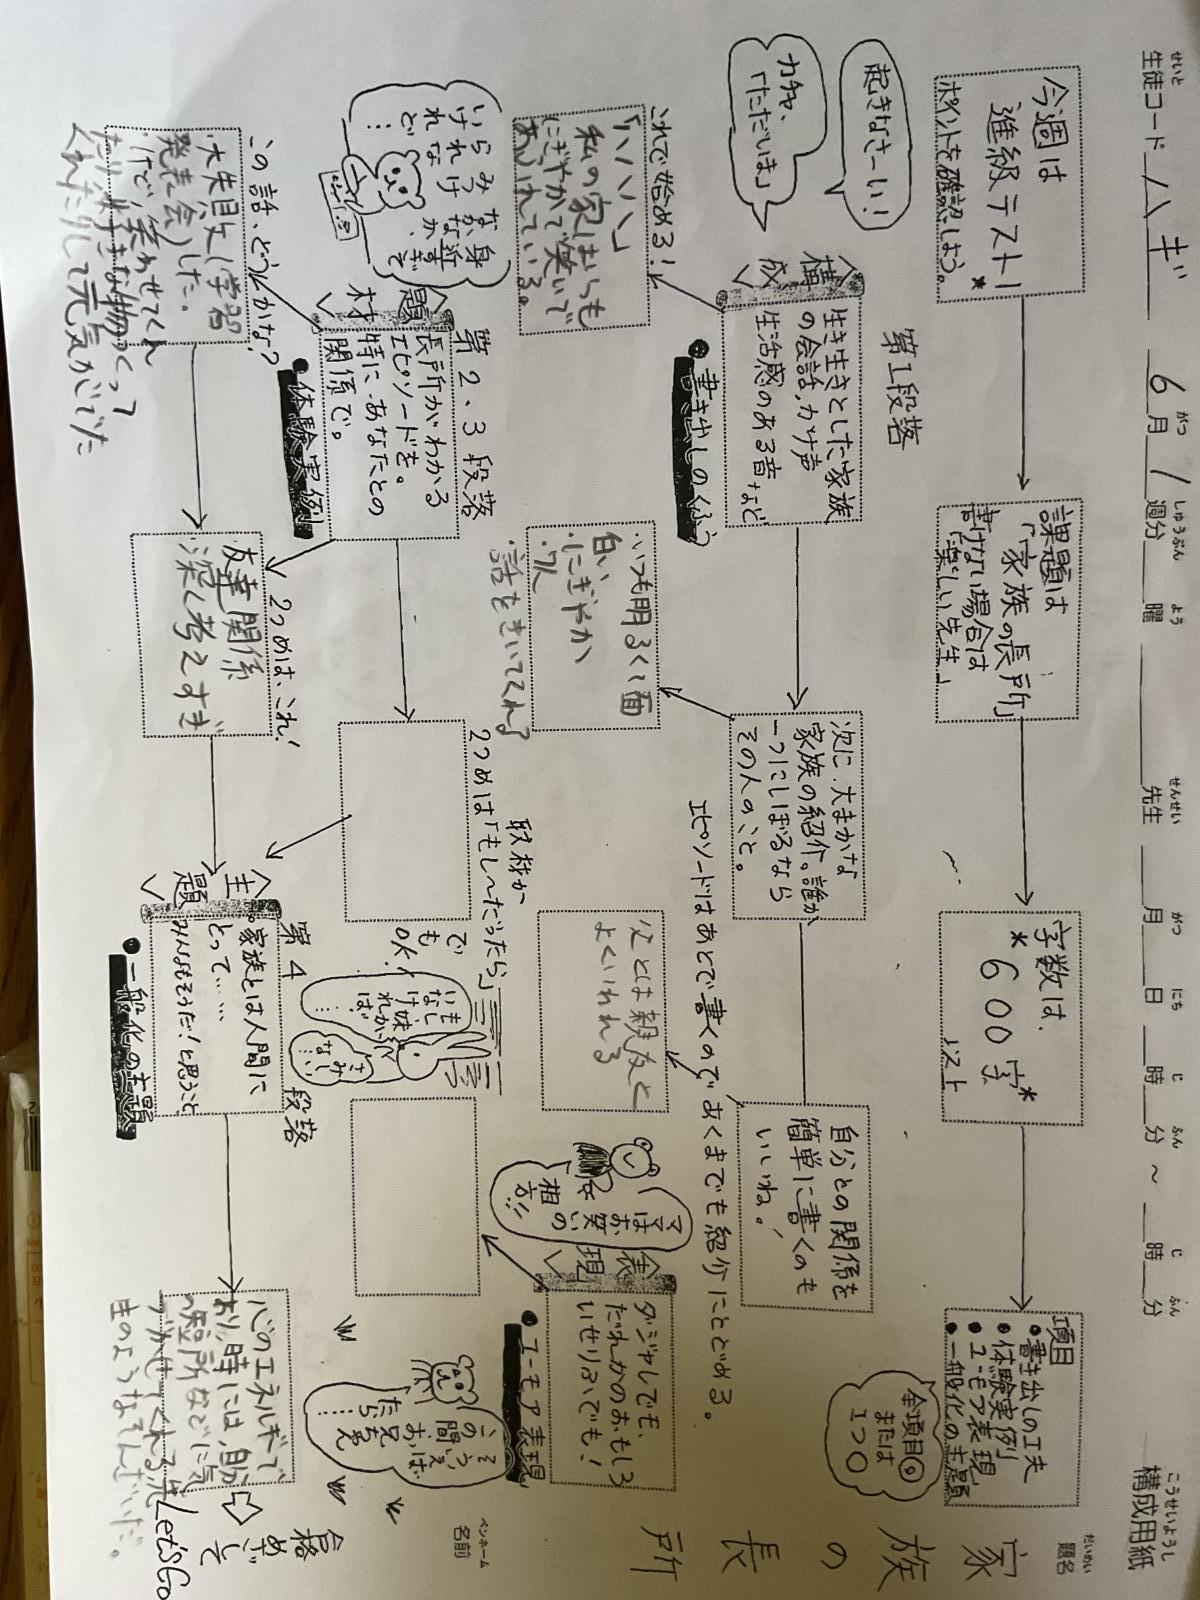 構成用紙
こうせいようし
せいと
生徒コード ハギ
6月1週分 曜 先生 月 日 時 分 ～ 時 分
がつ しゅうぶん よう せんせい がつ にち じ ふん じ ふん
だいめい
題名
家族の長所
ペンネーム
名前
今週は
進級テスト！
ポイントを確認しよう。
課題は
「家族の長所」
書けない場合は
「楽しい先生」
字数は、
*600字*
ジスト
項目
●書き出しの工夫
●体験実例
●ユーモア表現
●一般化の主題
全項目◎
または
1つ○
起きなさーい！
カチャ、
「ただいま」
第1段落
＜構成＞
生き生きとした家族
の会話、かけ声
生活感のある音など
●書き出しのくふう
次に、大まかな
家族の紹介。誰か
一つにしぼるなら
その人のこと。
自分との関係を
簡単に書くのも
いいね！
エピソードはあとで書くので あくまでも紹介にとどめる。
これで始める！
「ハハハ」
私の家はいつも
にぎやかで笑いで
あふれている。
・いつも明るく面
白い
・にぎやか
・7人
・話をきいてくれる
父とは親友と
よくいわれる
ママは
お笑い
の
相方!!
＜表現＞
ダジャレでも、
だれかのおもしろ
いせりふでも！
●ユーモア表現
みなが身
いつか近
られなすぎ
けなで
れど…
第2、3段落
＜題材＞
長所がわかる
エピソードを。
特に、あなたとの
関係で。
●体験実例
取材か
2つめは「もし〜だったら」
でも
OK！
もし妹が
いなけれ
ば…
さみ
しい…
そういえ
この間、
おばあ
兄ちゃん
たら…
この話、どうしかな？
・大失敗(学習
発表会)した。
けど、笑わせてくれ
たり好きな物つくって
くれたりして元気がでた
2つめは、これ！
友達関係
深く考えすぎ
＜主題＞
第4段落
○家族とは人間に
とって……
みんなもそうだ！と思うこと
●一般化の主題
心のエネルギーで
あり、時には、自分
の短所などに気
づかせてくれる先
生のようなそんざいだ。
合格
めざして
Let'sGo